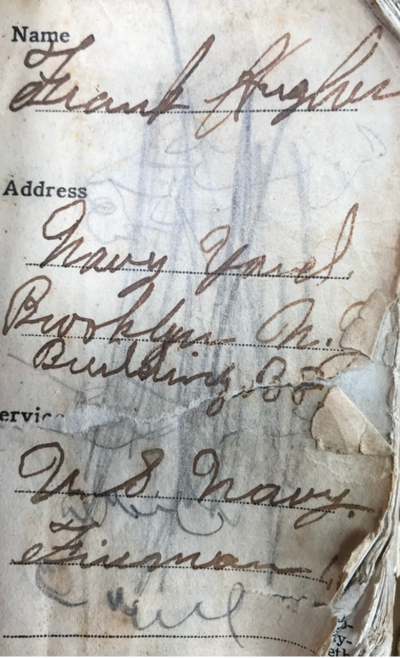 Name
Frank Hughes
Address
Navy Yard
Brooklyn N.
Building
ervic
U S Navy.
Fireman